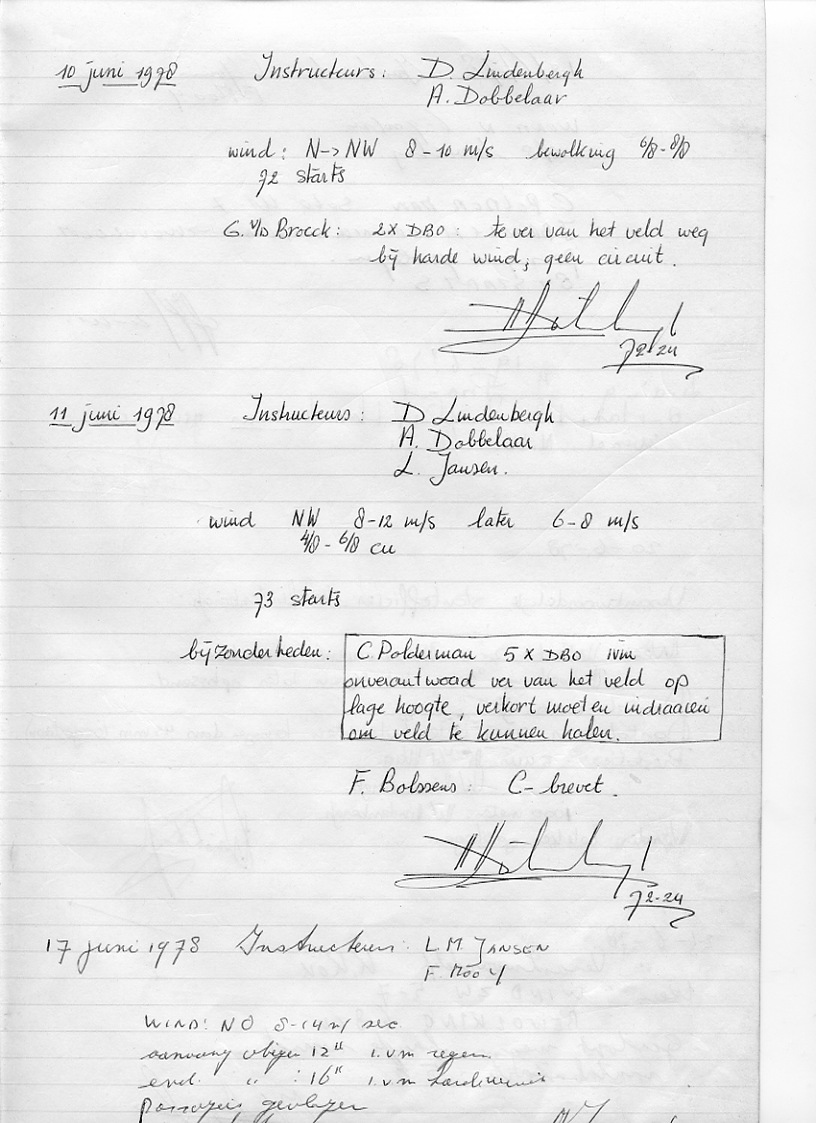 10 juni 1978 Instructeurs: D. Lindenbergh
A. Dobbelaar
wind: N->NW 8-10 m/s bewolking 6/8-8/8
72 starts
G. v/d Broeck: 2x DBO: te ver van het veld weg
bij harde wind, geen circuit.
72-24
11 juni 1978 Instructeurs: D Lindenbergh
A. Dobbelaar
L. Jansen.
wind NW 8-12 m/s later 6-8 m/s
4/8-6/8 cu
73 starts
bijzonderheden: C. Polderman 5 x DBO ivm
onverantwoord ver van het veld op
lage hoogte, verkort moeten indraaien
om veld te kunnen halen.
F. Bolssens: C-brevet.
72-24
17 juni 1978 Instructeurs: L.M JANSEN
F. MOOY
WIND: NO 8-14 m/sec
aanvang vliegen 12°° i.v.m regen
eind " : 16°° i.v.m
gevlogen